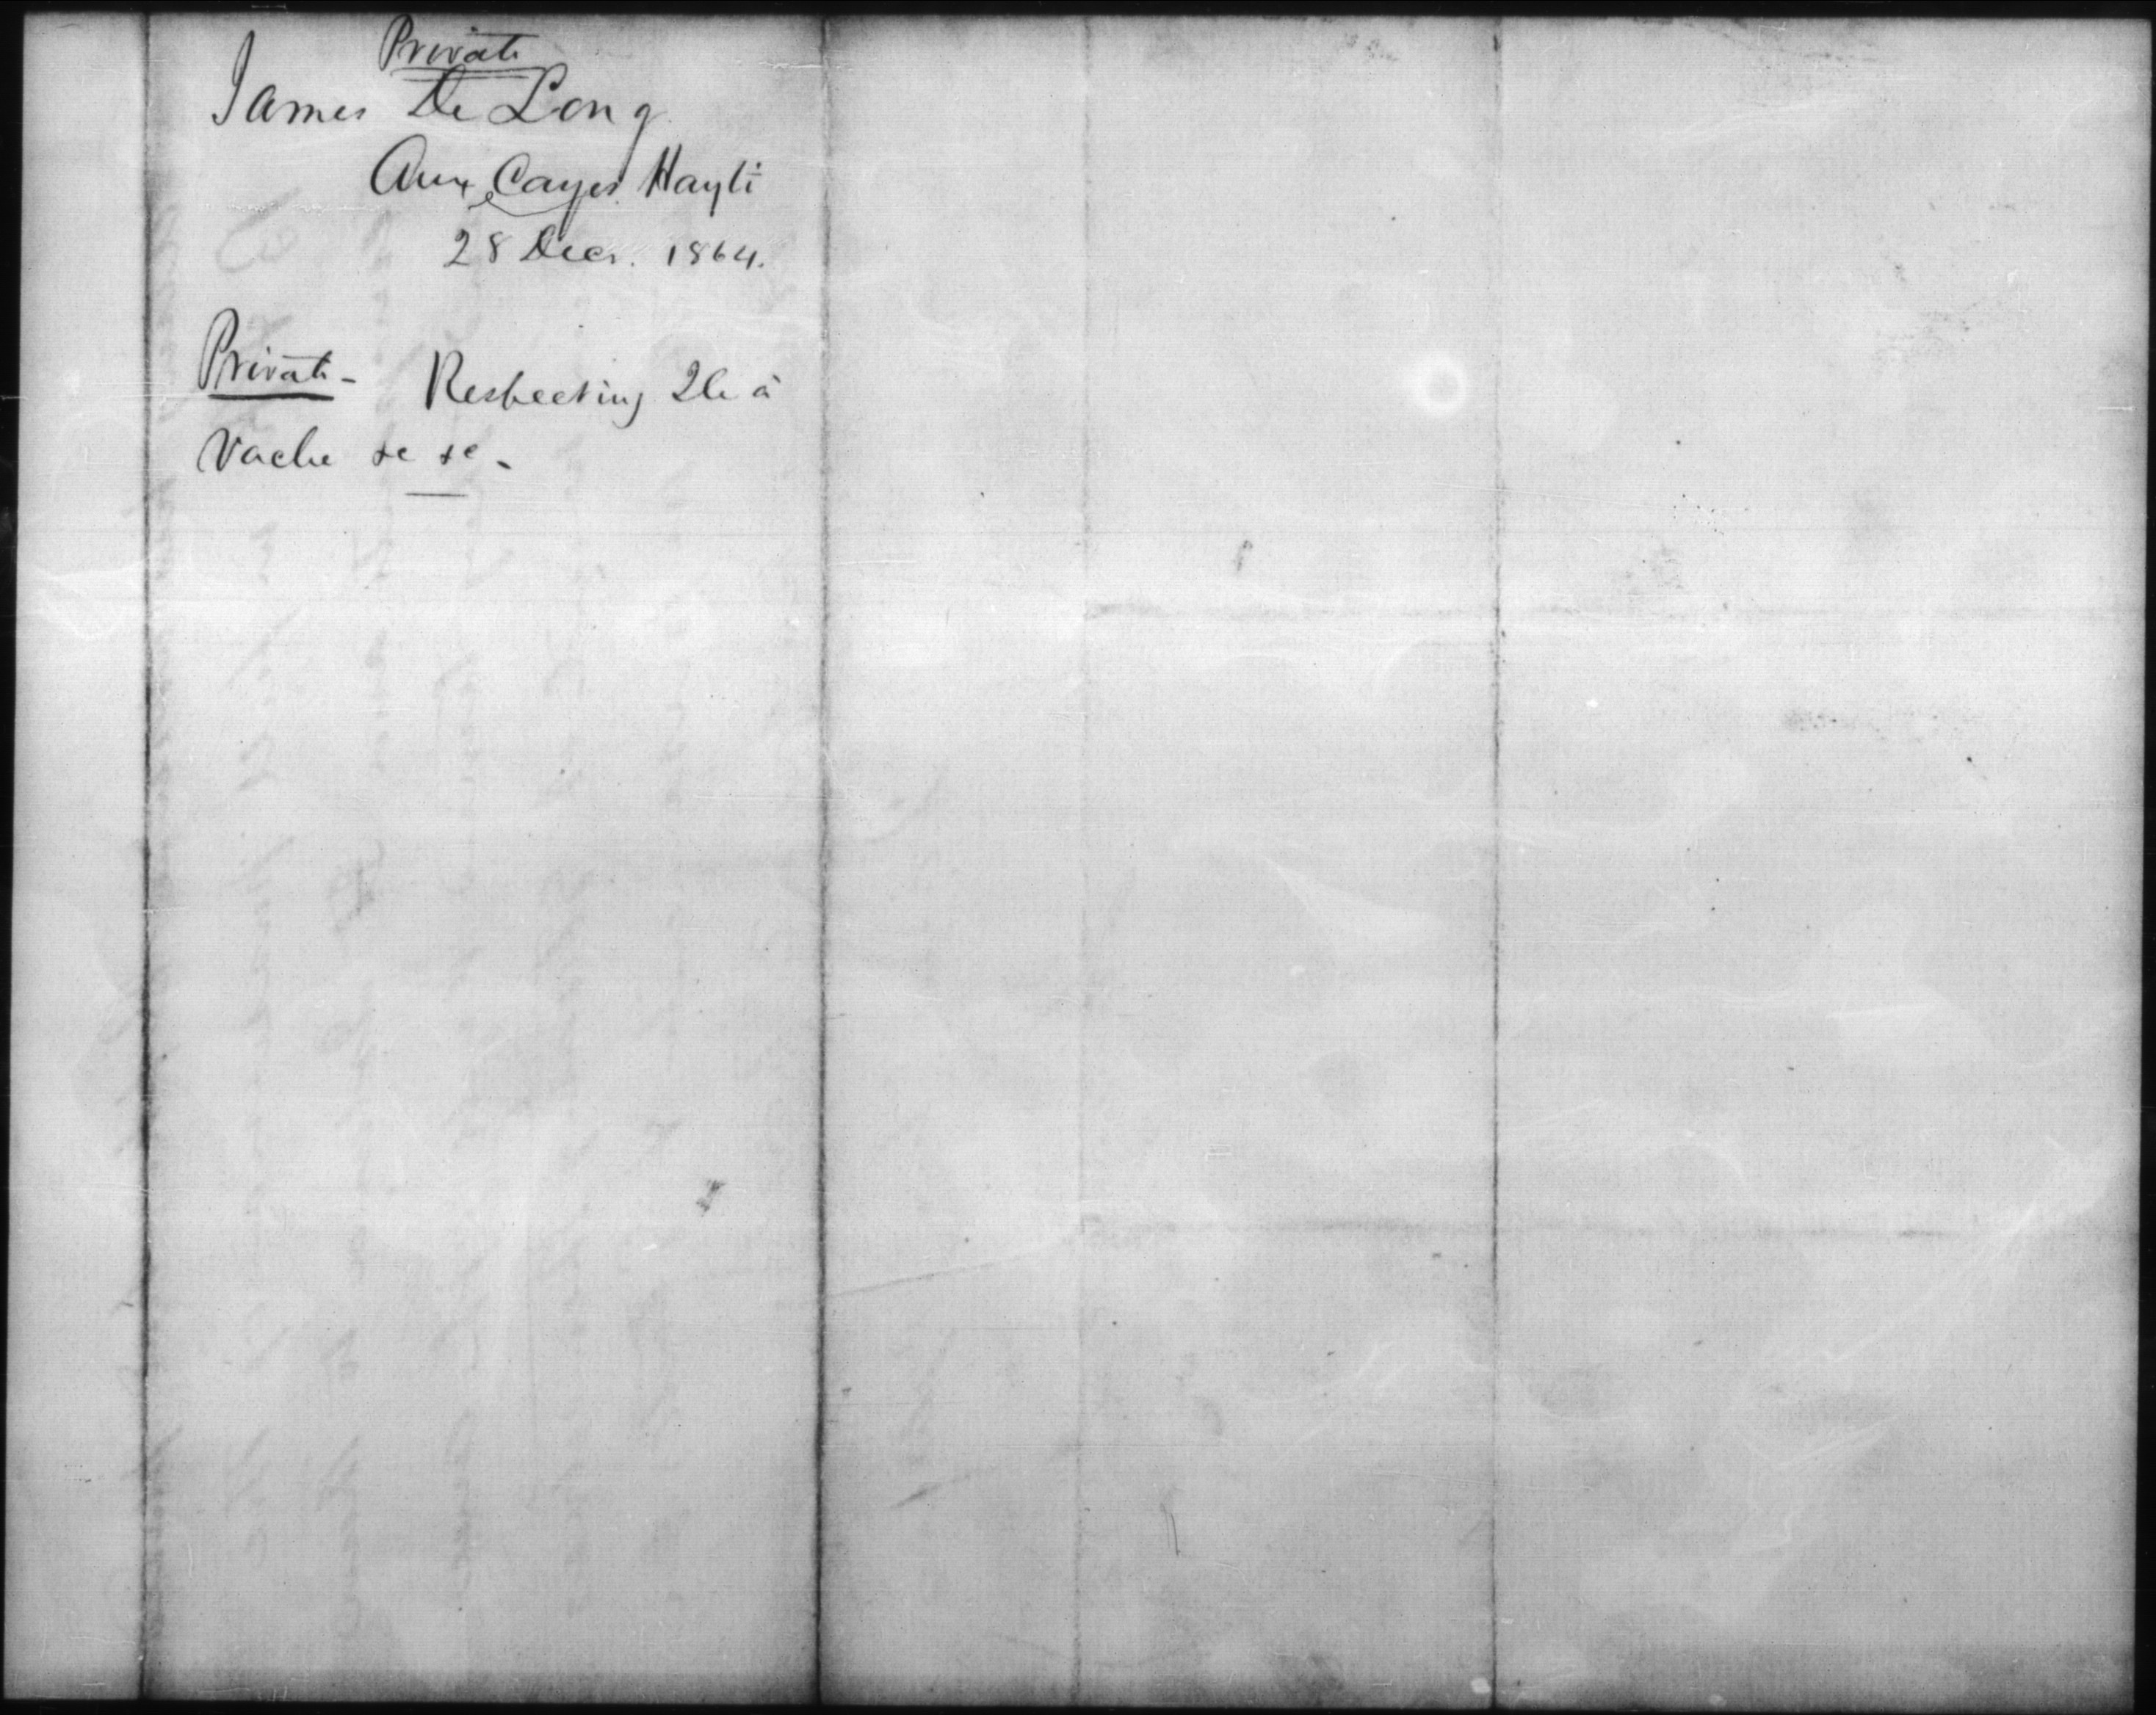 Private
James De Long
Aux Cayes. Hayti
28 Decr. 1864.
Private - Respecting Ile à
Vache &c &c -